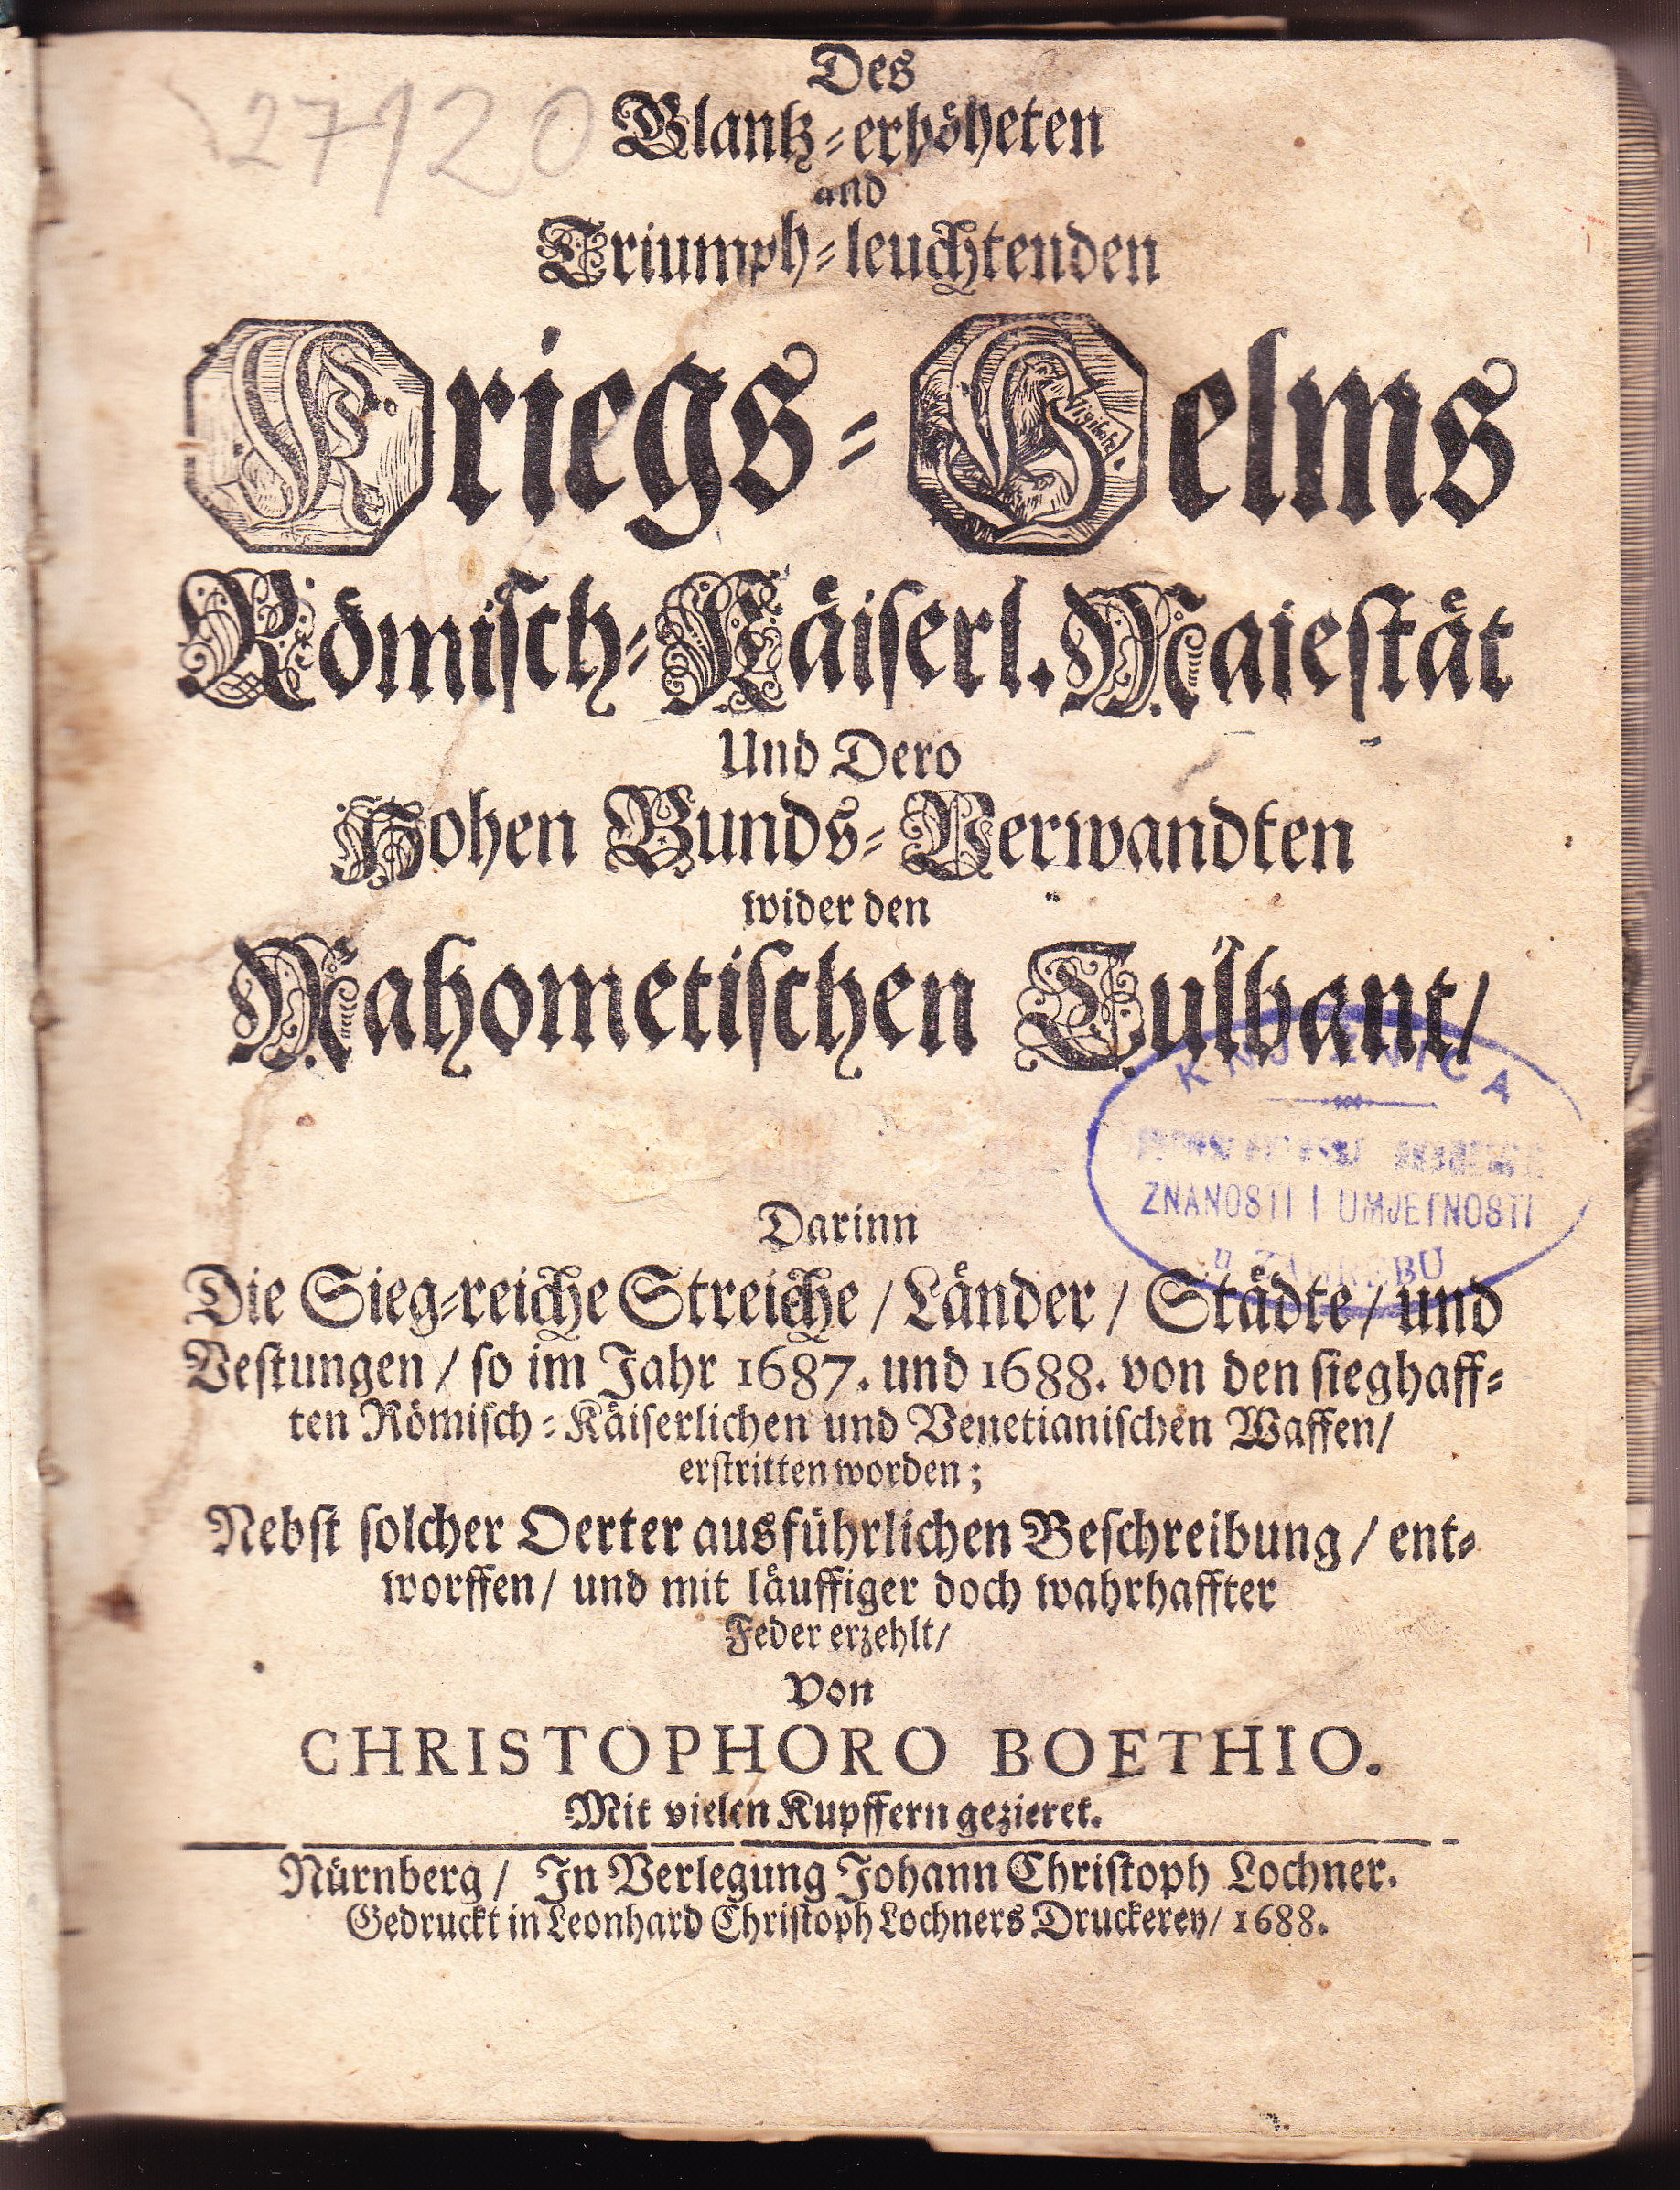 27120
Des
Glantz-erhöheten
und
Triumph-leuchtenden
Kriegs-Helms
Römisch-Käiserl. Maiestät
Und Dero
Hohen Bunds-Verwandten
wider den
Mahometischen Tulbant/
KNJIŽNICA
ZNANOSTI I UMJETNOSTI
U ZAGREBU
Darinn
Die Sieg-reiche Streiche / Länder / Städte / und
Vestungen / so im Jahr 1687. und 1688. von den sieghaff-
ten Römisch-Käiserlichen und Venetianischen Waffen/
erstritten worden;
Nebst solcher Oerter ausführlichen Beschreibung / ent-
worffen/ und mit läuffiger doch wahrhaffter
Feder erzehlt/
Von
CHRISTOPHORO BOETHIO.
Mit vielen Kupffern gezieret.
Nürnberg / In Verlegung Johann Christoph Lochner.
Gedruckt in Leonhard Christoph Lochners Druckerey/ 1688.